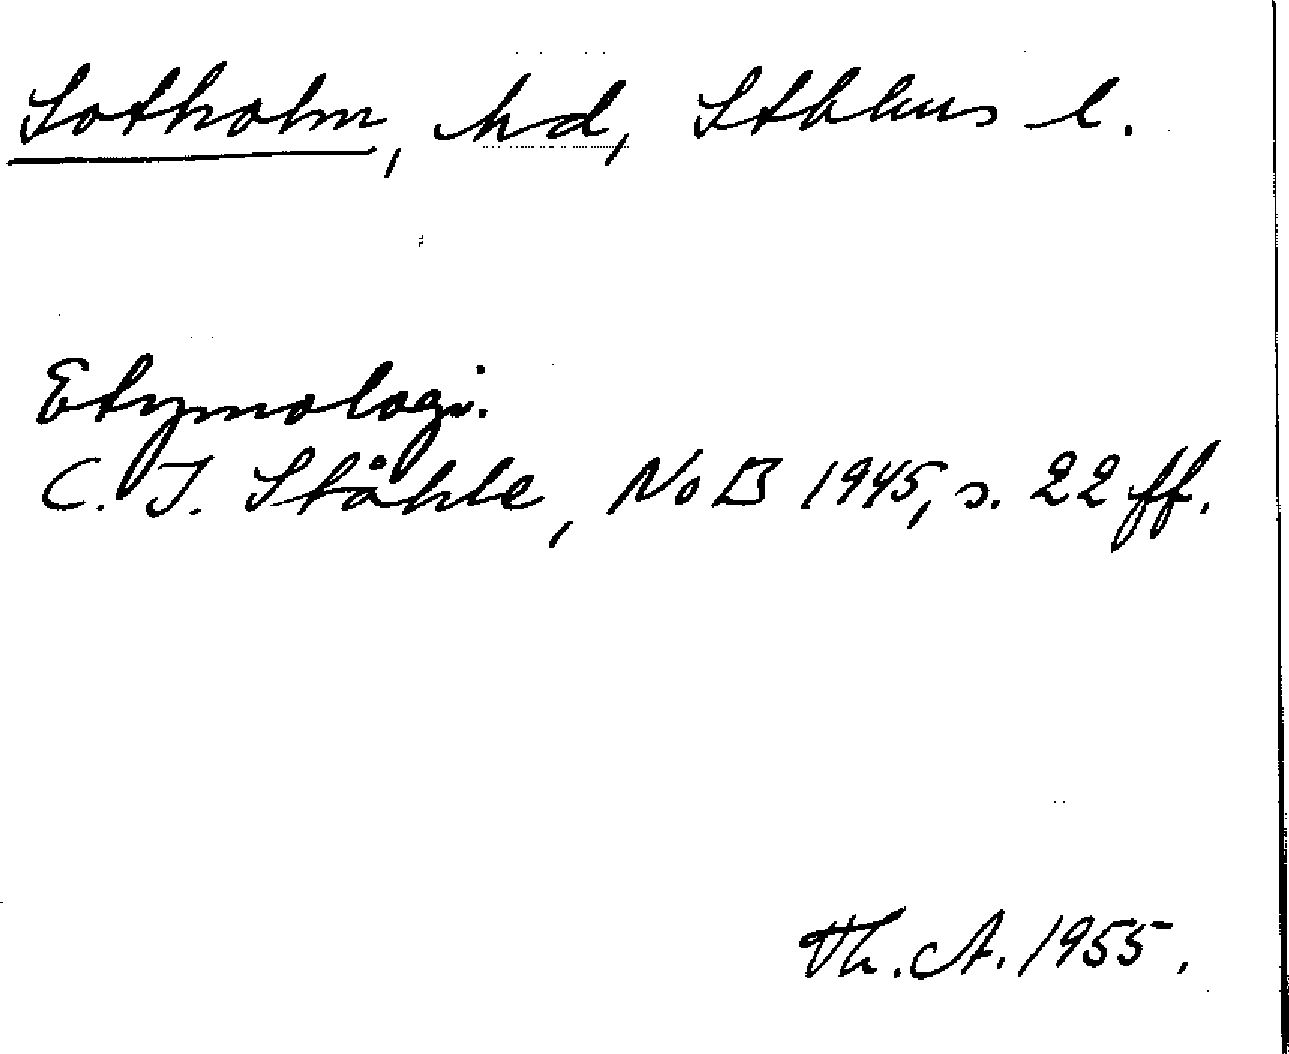 Sotholm, hd, Sthlms l.
Etymologi.
C. I. Ståhle, NoB 1945, s. 22 ff.
Th. A. 1955.